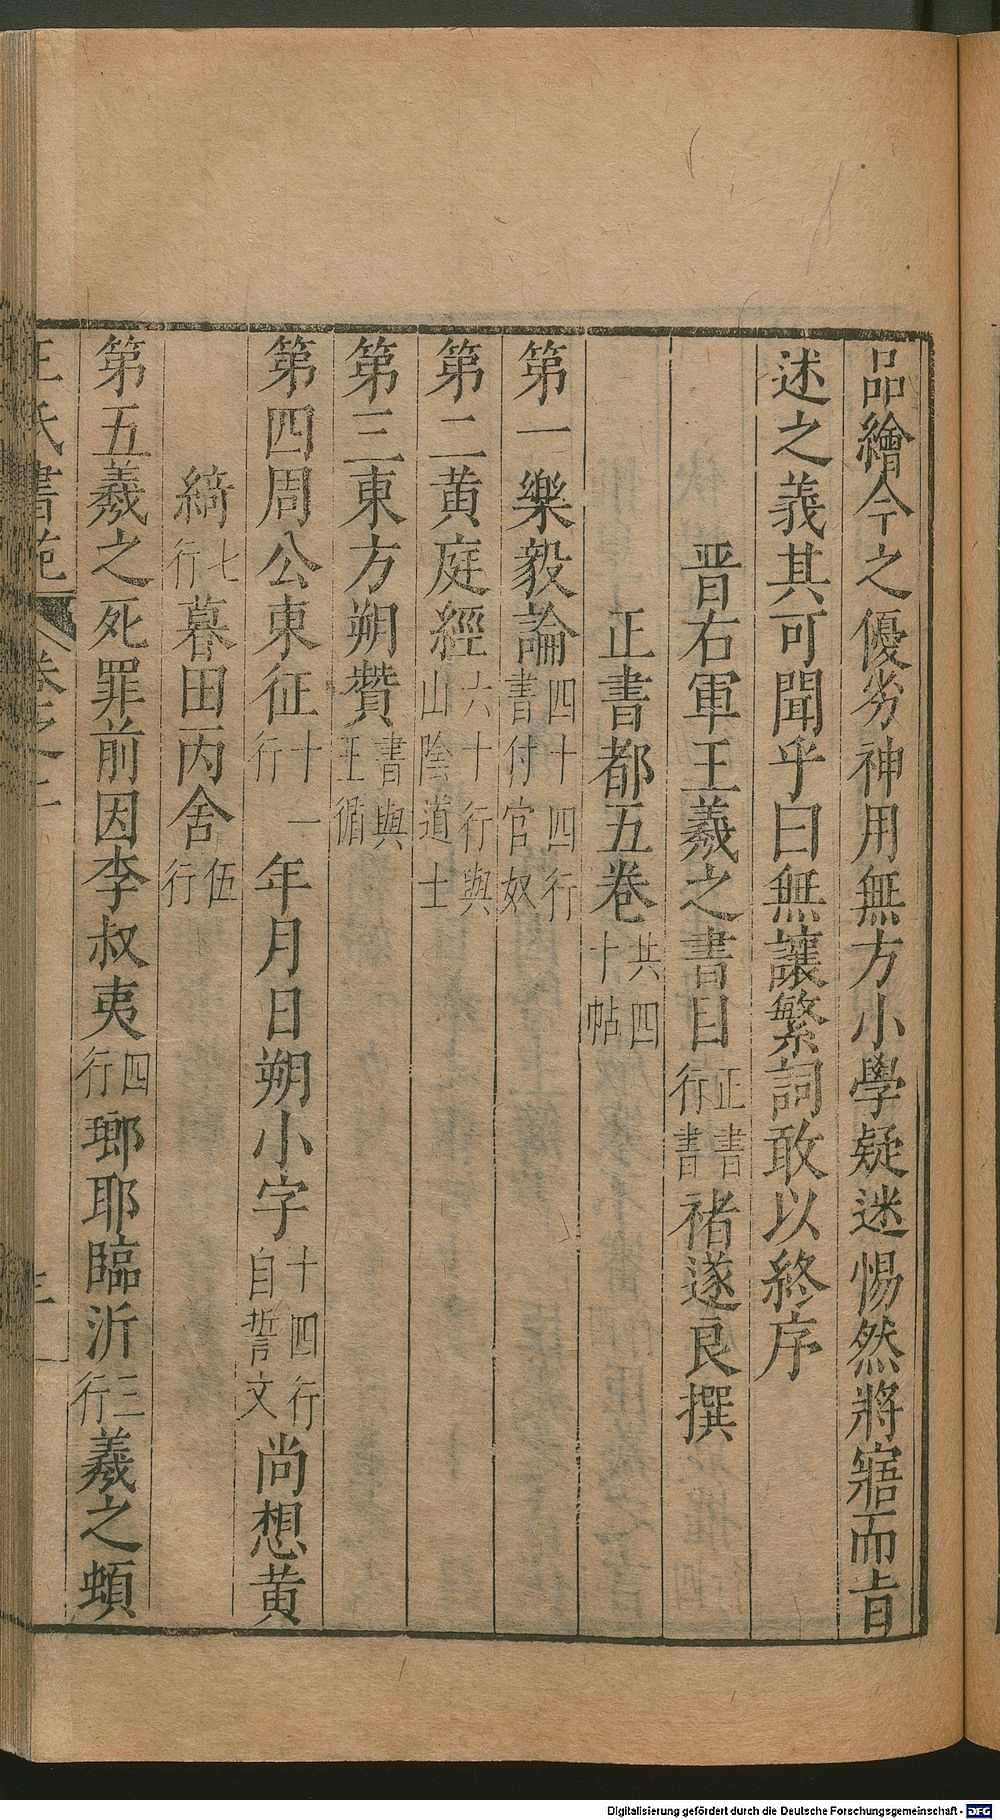 品繪今之優劣神用無方小學疑迷惕然將寤而旨
述之義其可聞乎曰無讓繁詞敢以終序
晋右軍王羲之書目正書行書褚遂良撰
正書都五卷共四十帖
第一樂毅論四十四行書付官奴
第二黄庭經六十行與山陰道士
第三東方朔贊書與王循
第四周公東征十一行年月日朔小字十四行自誓文尚想黄
綺七行暮田丙舍伍行
第五羲之死罪前因李叔夷四行瑯耶臨沂三行羲之頓
王氏書苑 卷之二 三
Digitalisierung gefördert durch die Deutsche Forschungsgemeinschaft - DFG